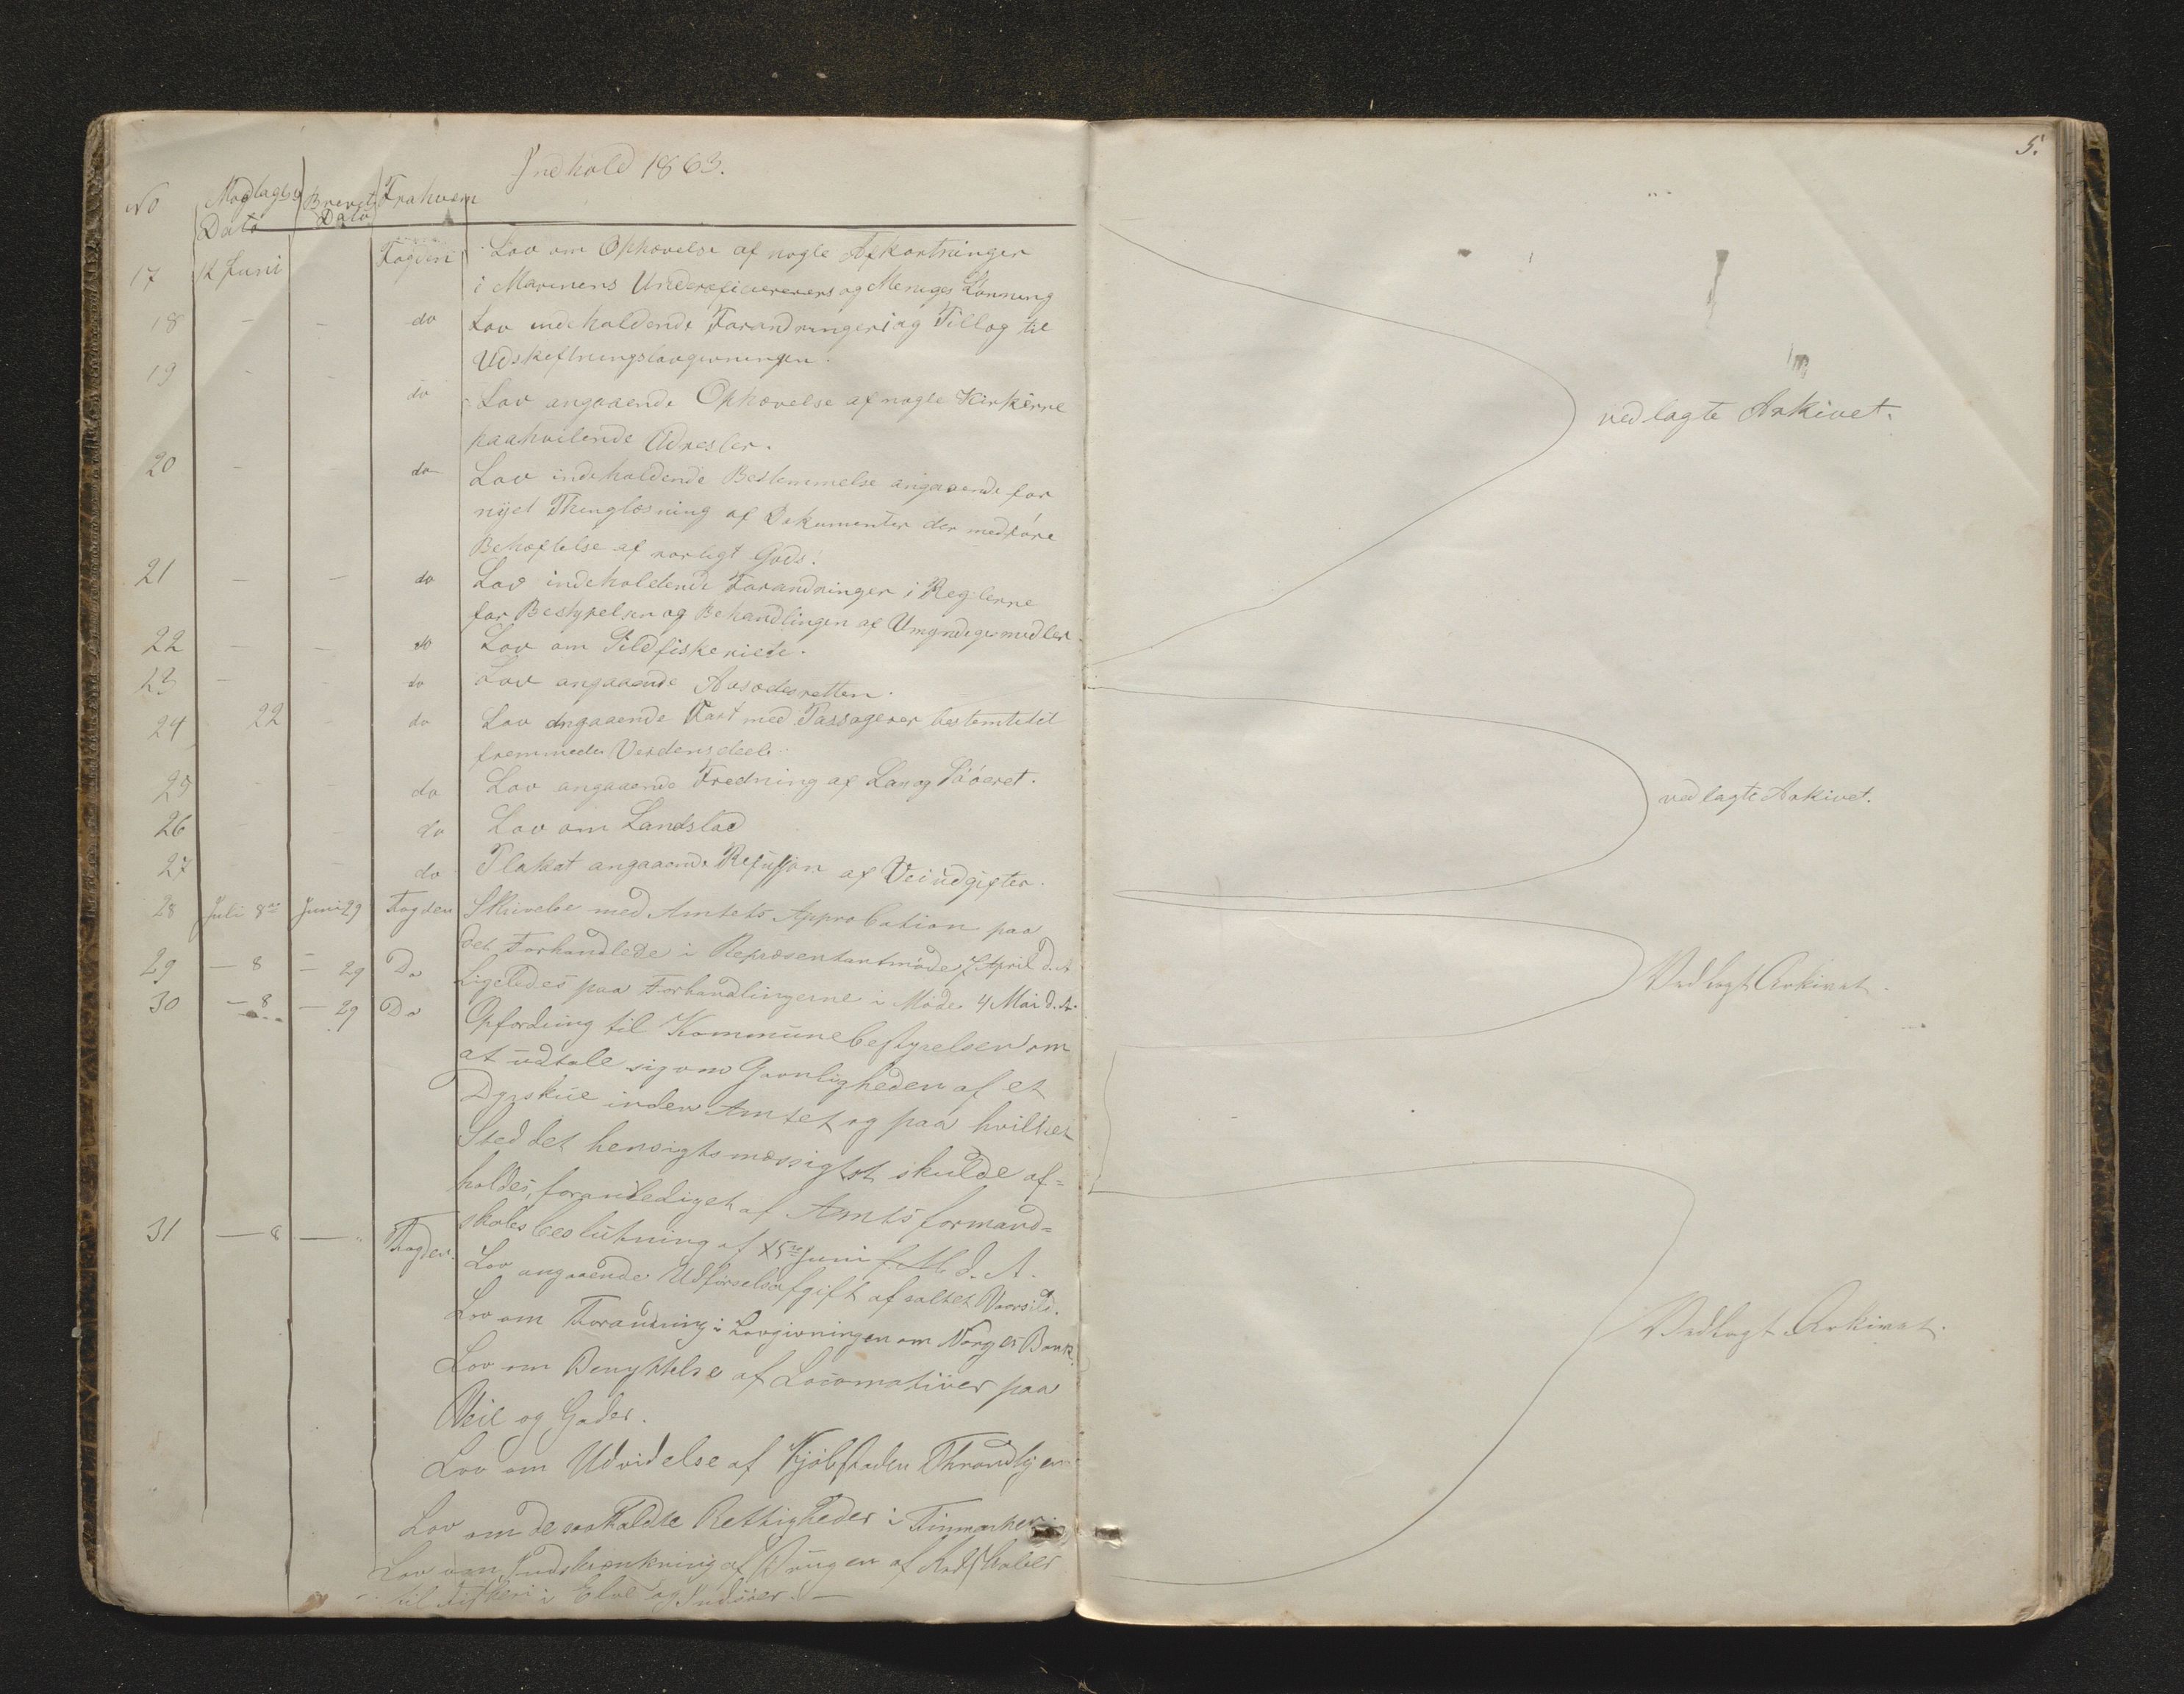 5.
Indhold 1863.
No Modtagelse Dato Brevets Dato Frahvem
17 12 Juni Fogden Lov om Ophævelse af nogle Afkortninger
i Marinens Underofficerers og Meniges Lönning
18 - - do Lov indeholdende Forandringer i og Tillæg til
Udskiftningslovgivningen.
19 - - do Lov angaaende Ophævelse af nogle Kirkerne
paahvilende Udresler.
20 - - do Lov indeholdende Bestemmelse angaaende for
nyet Thinglæsning af Dokumenter der medföre
Behæftelse af rörligt Gods.
21 - - do Lov indeholdende Forandringer i Reglerne
for Bestyrelsen og Behandlingen af Umyndiges midler
22 - - do Lov om Sildfiskeriet.
23 - - do Lov angaaende Aasædesretten.
24 22 - do Lov angaaende Fart med Passagerer bestemt til
fremmede Verdensdeele.
25 - - do Lov angaaende Fredning af Lax og Sööret.
26 - - do Lov om Landslod
27 - - do Plakat angaaende Refusjon af Veiudgifter.
28 Juli 8de Juni 29 Fogden Skrivelse med Amtets Approbation paa
det Forhandlede i Repræsentantmöde 7 April d. A.
29 - 8 - 29 Do Ligeledes paa Forhandlingerne i Möde 4 Mai d. A.
30 - 8 - 29 Do Opfordring til Kommunebestyrelsen om
at udtale sig om Gavnligheden af et
Dyrskue inden Amtet og paa hvilket
Sted det hensigtsmæssigst skulde af=
holdes, foranlediget af Amtsformand=
skabs beslutning af 15de Juni d. A.
31 - 8 - Fogden. Lov angaaende Udförselsafgift af saltet Vaarsild.
Lov om Forandring i Lovgivningen om Norges Bank.
Lov om Benyttelse af Locomotiver paa
Veie og Gader.
Lov om Udvidelse af Kjöbstaden Throndhjem
Lov om de saakaldte Rettigheder i Finmarken
Lov om Indskrænkning af Brugen af Redskaber
til Fiskeri i Elve og Indsöer. -
vedlagte Arkivet.
vedlagte Arkivet.
Vedlagt Arkivet.
Vedlagt Arkivet.